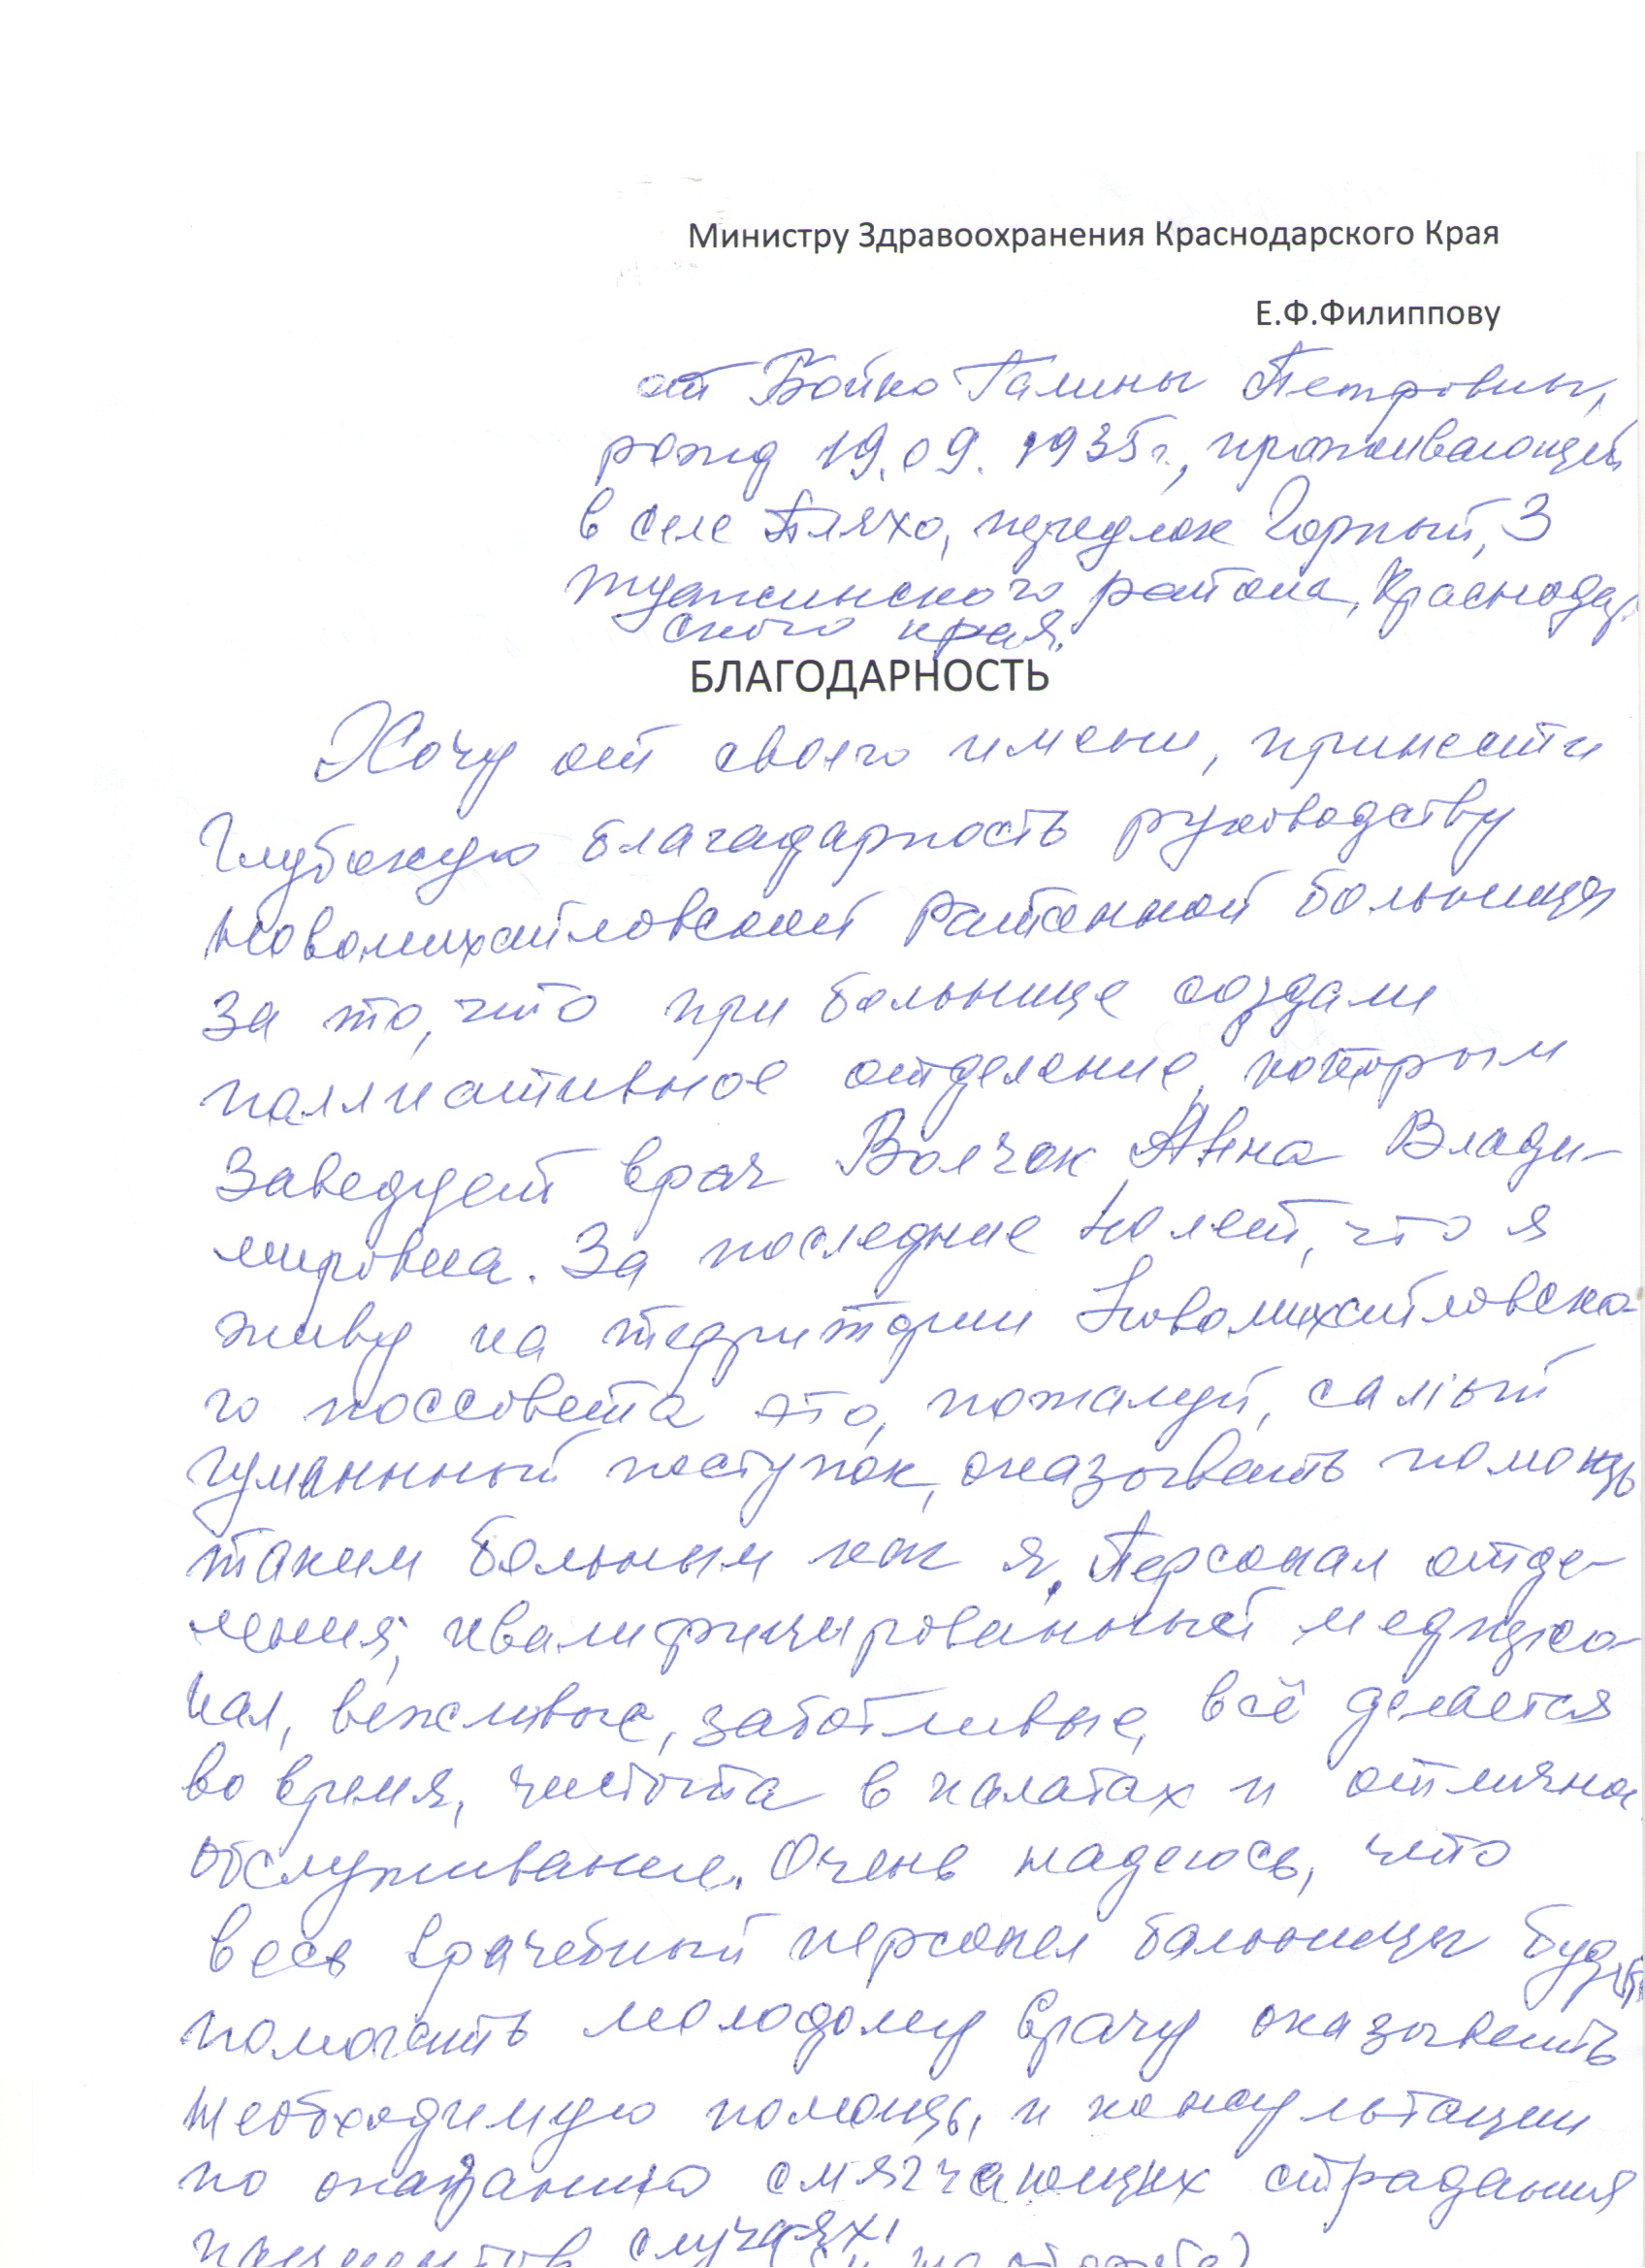 Министру Здравоохранения Краснодарского Края
Е.Ф.Филиппову
от Бойко Галины Петровны,
рожд 19.09.1935г., проживающей
в селе Пляхо, переулок Горный, 3
туапсинского района, Краснодар
ского края.
БЛАГОДАРНОСТЬ
Хочу от своего имени, принести
глубокую благадарность руководству
Новомихайловской районной больницы
За то, что при больнице создали
паллиативное отделение, которым
Заведует врач Волчок Анна Влади-
мировна. За последние 40 лет, что я
живу на территории Новомихайловско-
го поссовета это, пожалуй, самый
гуманный поступок, оказывать помощь
таким больным как я. Персонал отде-
ления, квалифицированный медперсо-
нал, вежливые, заботливые, всё делается
во время, чистота в палатах и отличное
обслуживание. Очень надеюсь, что
весь врачебный персонал больницы будет
помогать молодому врачу оказывать
необходимую помощь, и консультации
по оказанию смягчающих страдания
пациентов случаях